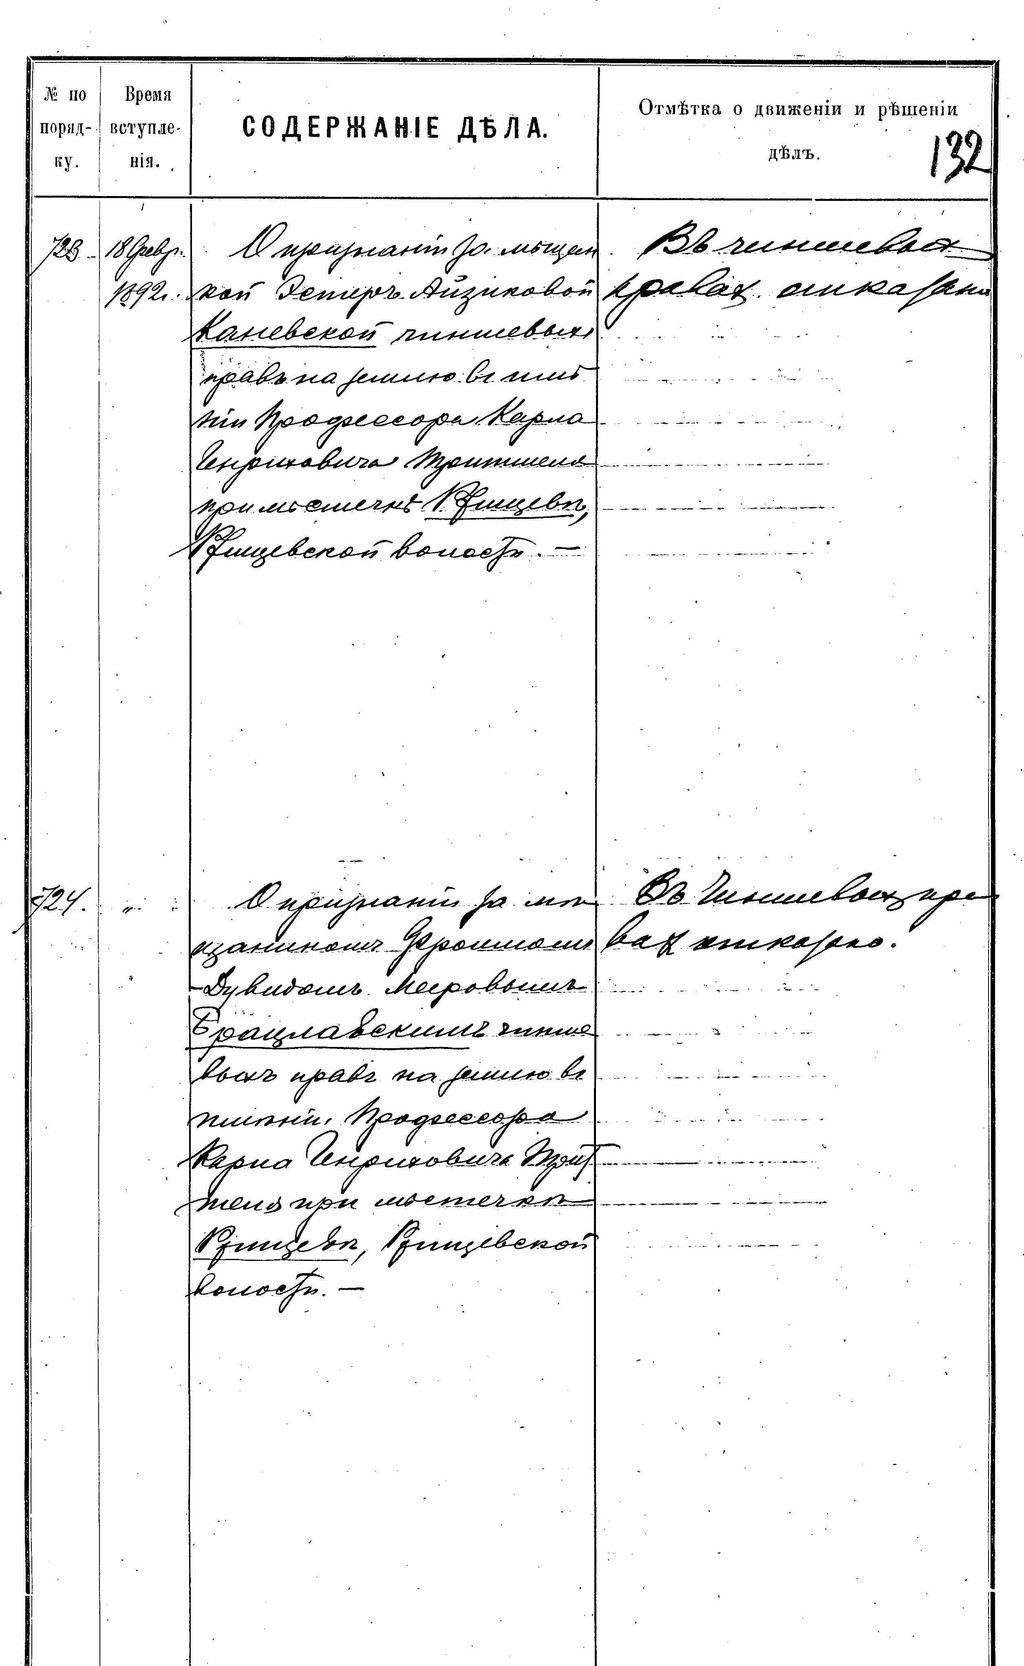 № по поряд-ку.
Время вступле-нія.
СОДЕРЖАНІЕ ДѢЛА.
Отмѣтка о движеніи и рѣшеніи дѣлъ.
132
723
18 Февр. 1892 г.
О признаніи за мѣщан
кой Эстеръ Айзиковой
Каневской чиншевыхъ
правъ на землю въ имѣ
ніи Профессора Карла
Генриховича Тритшеля
при мѣстечкѣ Ржищевѣ,
Ржищевской волости. —
Въ чиншевых
правах отказано
724.
" "
О признаніи за мѣ
щаниномъ Фроимомъ
-Дувидомъ Мееровымъ
Брацлавскимъ чинше
выхъ правъ на землю въ
имѣніи Профессора
Карла Генриховича Трит
шеля при мѣстечкѣ
Ржищевѣ, Ржищевской
волости. —
Въ Чиншевыхъ пра
вах отказано.